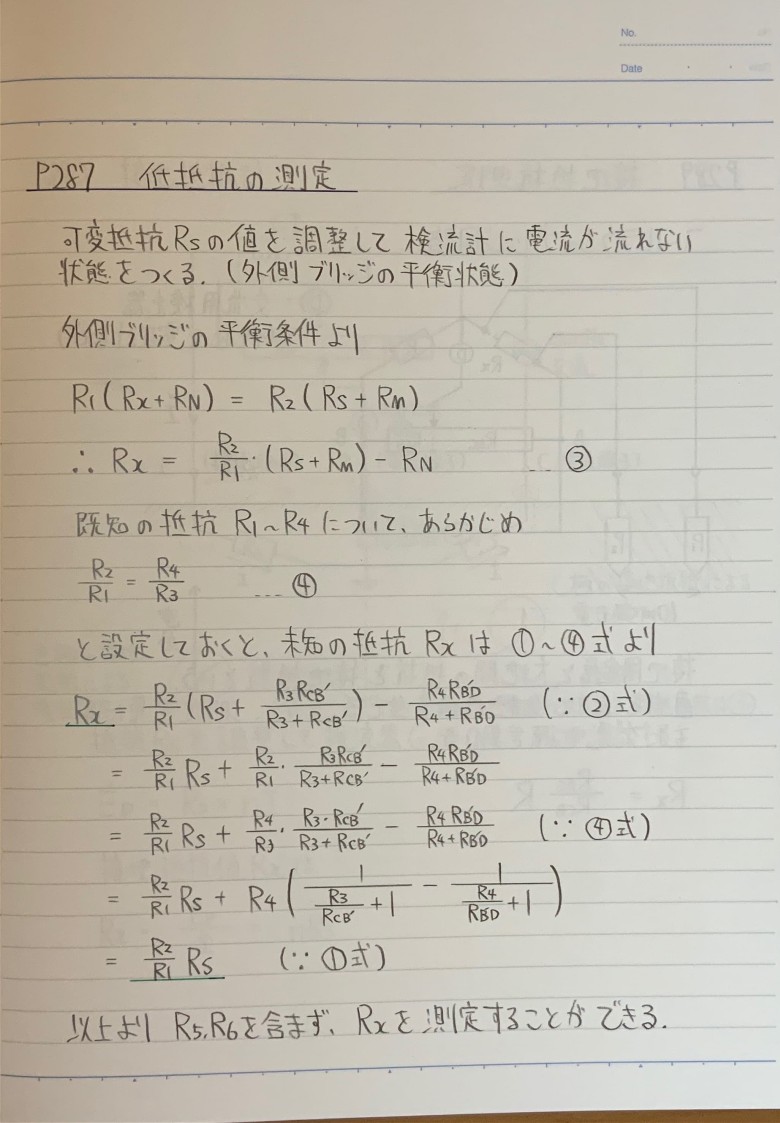 No.
Date
P287 低抵抗の測定
可変抵抗Rsの値を調整して検流計に電流が流れない
状態をつくる.(外側ブリッジの平衡状態)
外側ブリッジの平衡条件より
R1(Rx+RN) = R2(Rs+Rm)
∴ Rx = R2/R1・(Rs+Rm) - RN … ③
既知の抵抗 R1~R4について、あらかじめ
R2/R1 = R4/R3 … ④
と設定しておくと、未知の抵抗 Rx は ①~④式より
Rx = R2/R1 (Rs + R3RCB'/(R3+RCB')) - R4RB'D/(R4+RB'D) (∵②式)
= R2/R1 Rs + R2/R1・R3RCB'/(R3+RCB') - R4RB'D/(R4+RB'D)
= R2/R1 Rs + R4/R3・R3・RCB'/(R3+RCB') - R4RB'D/(R4+RB'D) (∵④式)
= R2/R1 Rs + R4(1/(R3/RCB'+1) - 1/(R4/RB'D+1))
= R2/R1 Rs (∵①式)
以上より R5,R6を含まず、Rxを測定することができる.